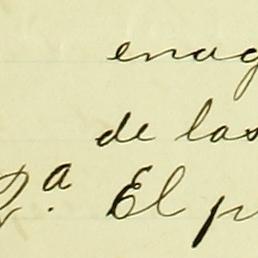 enag
de las
2.ª El p